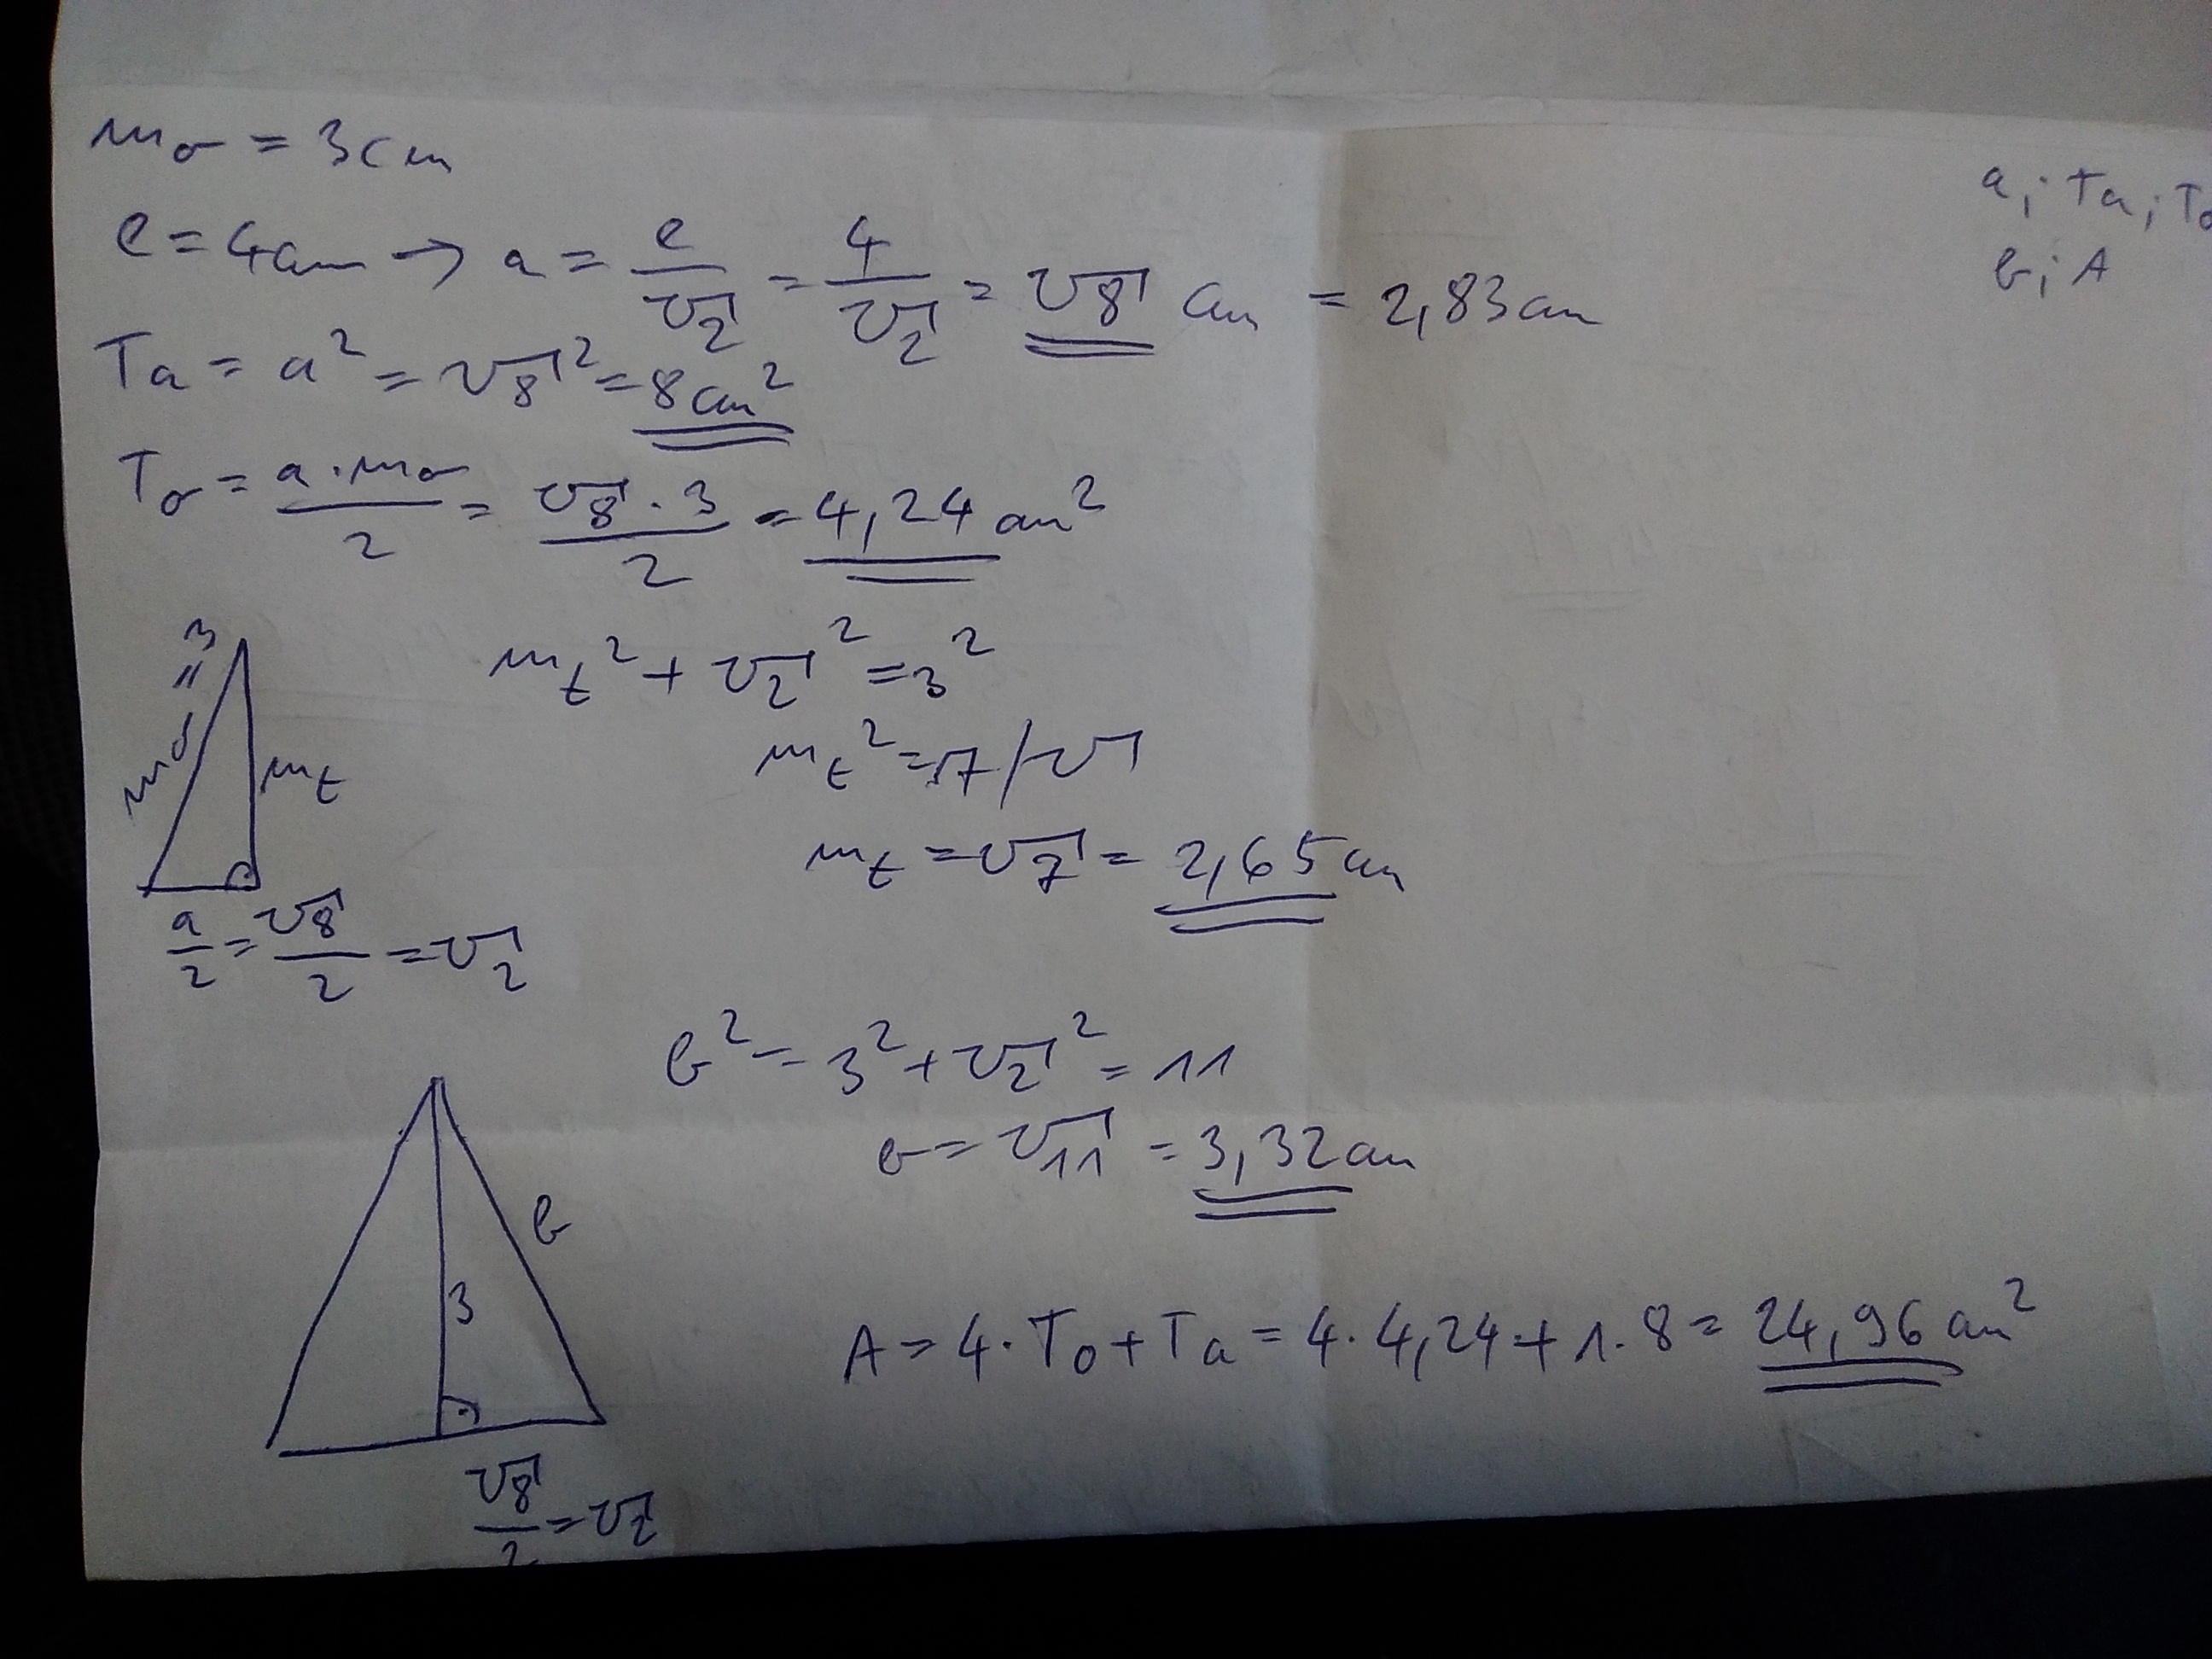 m_o = 3cm
a; Ta; To
b; A
e = 4cm → a = e/√2 = 4/√2 = √8 cm = 2,83cm
Ta = a² = √8² = 8cm²
To = a·m_o/2 = √8·3/2 = 4,24cm²
m_o = 3
m_t
a/2 = √8/2 = √2
m_t² + √2² = 3²
m_t² = 7 /√
m_t = √7 = 2,65cm
b² = 3² + √2² = 11
b = √11 = 3,32cm
b
3
√8/2 = √2
A = 4·To + Ta = 4·4,24 + 1·8 = 24,96cm²